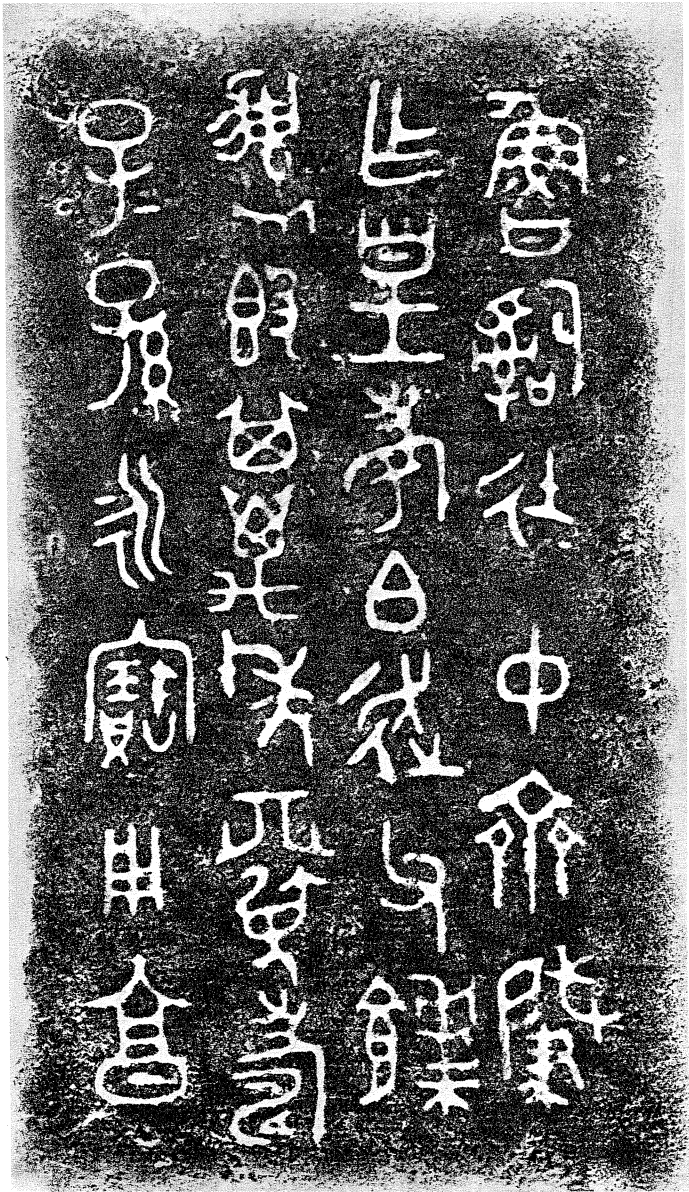 魯𤔲徒中齊肇
乍皇考白走父餴
盨𣪘其萬年眉壽
子=孫=永寶用享